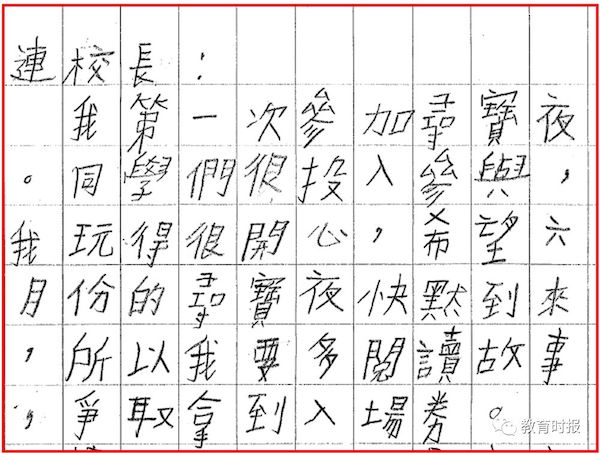 連校長：
我第一次參加尋寶夜
。同學們很投入參與，
我玩得很開心，希望六
月份的尋寶夜快默到來
，所以我要多閱讀故事
，爭取拿到入場券。
教育时报